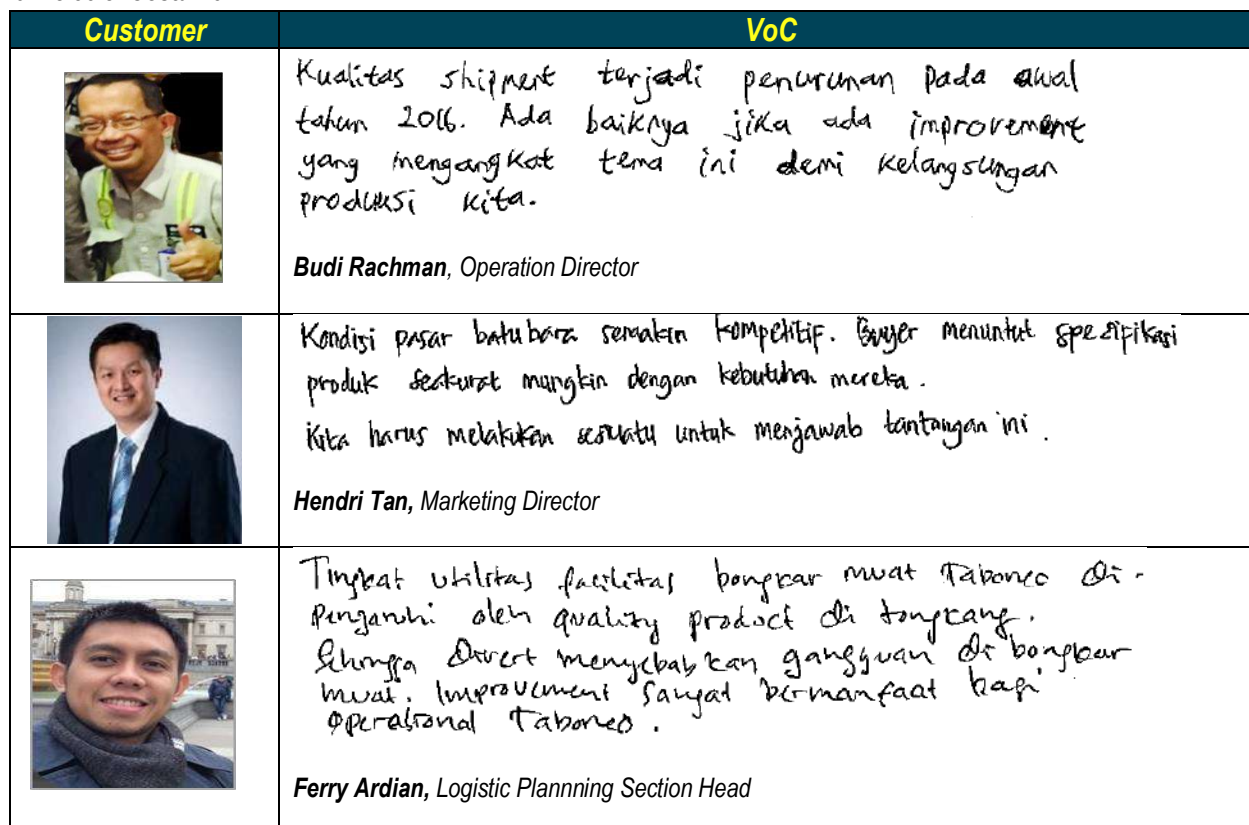 Customer VoC
Kualitas shipment terjadi penurunan pada awal
tahun 2016. Ada baiknya jika ada improvement
yang mengangkat tema ini demi kelangsungan
produksi kita.
Budi Rachman, Operation Director
Kondisi pasar batubara semakin kompetitif. Buyer menuntut spezifikasi
produk seakurat mungkin dengan kebutuhan mereka.
Kita harus melakukan sesuatu untuk menjawab tantangan ini.
Hendri Tan, Marketing Director
Tingkat utilitas fasilitas bongkar muat Taboneo di-
pengaruhi oleh quality product di tongkang.
Sehingga Divert menyebabkan gangguan di bongkar
muat. Improvement sangat bermanfaat bagi
operasional Taboneo.
Ferry Ardian, Logistic Plannning Section Head